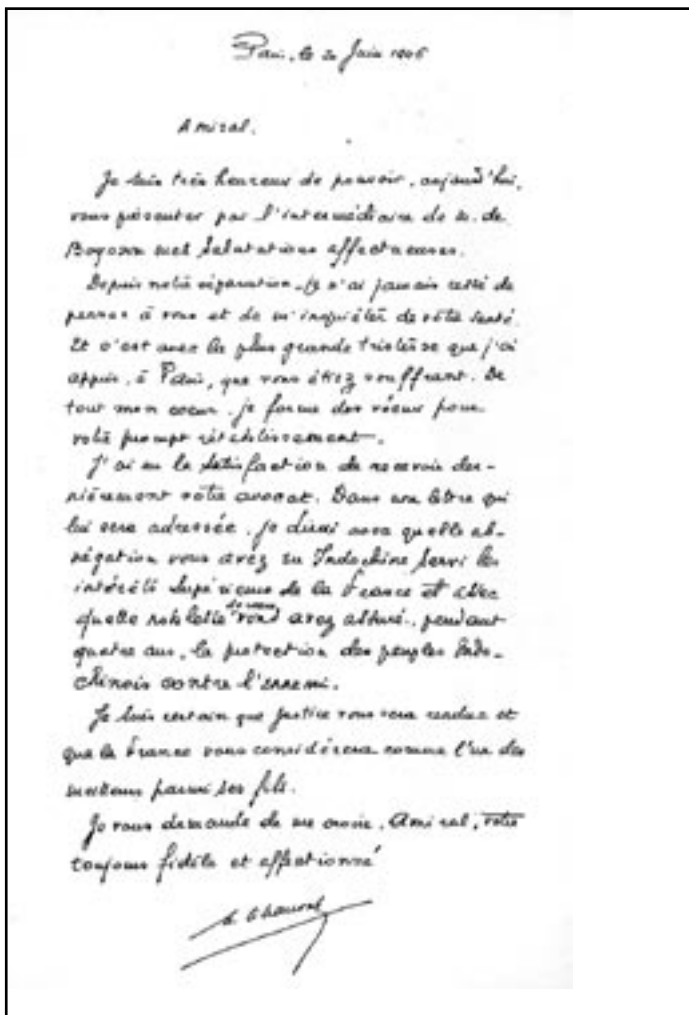 Paris, le 20 Juin 1946
Amiral.
Je suis très heureux de pouvoir, aujourd'hui,
vous présenter par l'intermédiaire de M. de
mes salutations affectueuses.
Depuis notre séparation, je n'ai jamais cessé de
penser à vous et de m'inquiéter de votre santé.
Et c'est avec la plus grande tristesse que j'ai
appris, à Paris, que vous étiez souffrant. De
tout mon coeur, je forme des voeux pour
votre prompt rétablissement.
J'ai eu la satisfaction de recevoir der-
nièrement votre avocat. Dans une lettre qui
lui sera adressée, je dirai avec quelle ab-
négation vous avez en Indochine servi les
intérêts supérieurs de la France et avec
quelle noblesse vous avez assuré, pendant
quatre ans, la protection des peuples Indo-
chinois contre l'ennemi.
Je suis certain que justice vous sera rendue et
que la France vous considérera comme l'un des
meilleurs parmi ses fils.
Je vous demande de me croire, Amiral, votre
toujours fidèle et affectionné